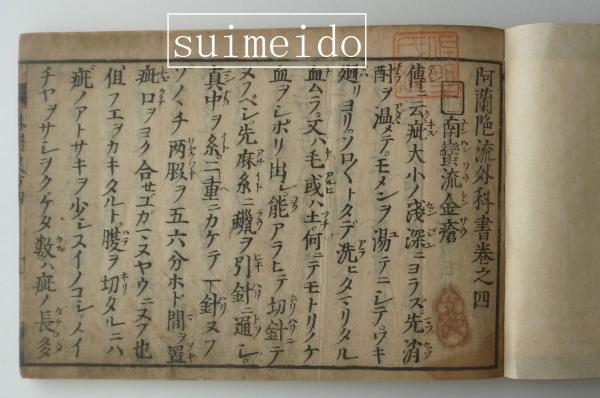 suimeido
阿蘭陀流外科書巻之四
南蠻流金瘡
傳ニ云疵大小ノ淺深ニヨラズ先消
酎ヲ温メテモメンヲ湯テニシテウキ
廻ヨリソロ〱トタデ洗ヒタマリタル
血ムラ又ハ毛或ハ土何ニテモトリノケ
血ヲシボリ出シ能アラヒテ切針ニテ
ヌフベシ先麻糸ニ蠟ヲ引針ニ通シ
真中ヲ糸二重ニカケテ下針ヌフ
ソノチ両股ヲ五六分ホド間ヲ置
疵口ヲヨク合セユガマヌヤウニヌフ也
但フエヲカキタルト膄ヲ切タルニハ
疵ノアトサキヲ少シスイノコシメイ
チヤヲサシヲクケタ數ハ疵ノ長多